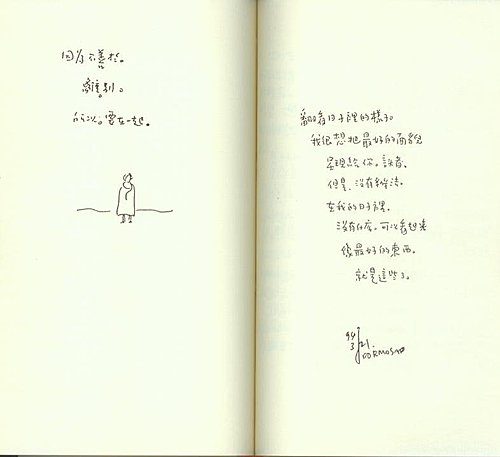 因為不善於。
離別。
所以。要在一起。
翻看日子裡的樣子。
我很想把最好的面貌
呈現給你。說著。
但是。沒有辦法。
在我的日子裡。
沒有什麼。可以看起來
像最好的東西。
就是這些了。
94
3/21.
FORMOSA